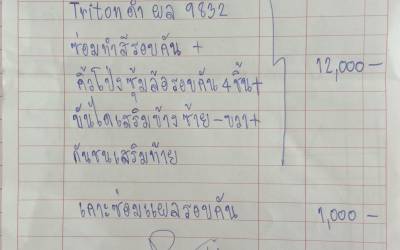 Triton ดำ ยล 9832
ซ่อมทำสีรอบคัน +
คิ้วโป่งซุ้มล้อรอบคัน 4 ชิ้น +
บันไดเสริมข้างซ้าย-ขวา +
กันชนเสริมท้าย
12,000 -
เคาะซ่อมแผลรอบคัน 1,000 -